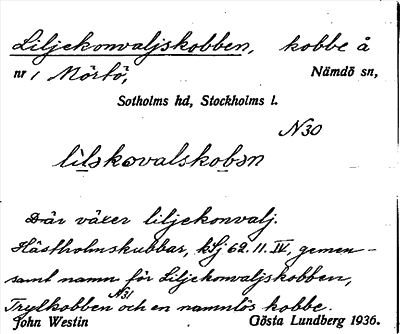 Liljekonvaljskobben, kobbe å
nr 1 Mörtö, Nämdö sn,
Sotholms hd, Stockholms l.
N30
lilskovalskobən
Där växer liljekonvalj.
Hästholmskubbar, kSj 62.11.IV, gemen-
samt namn för Liljekonvaljskobben,
N31
Trylkobben och en namnlös kobbe.
John Westin Gösta Lundberg 1936.